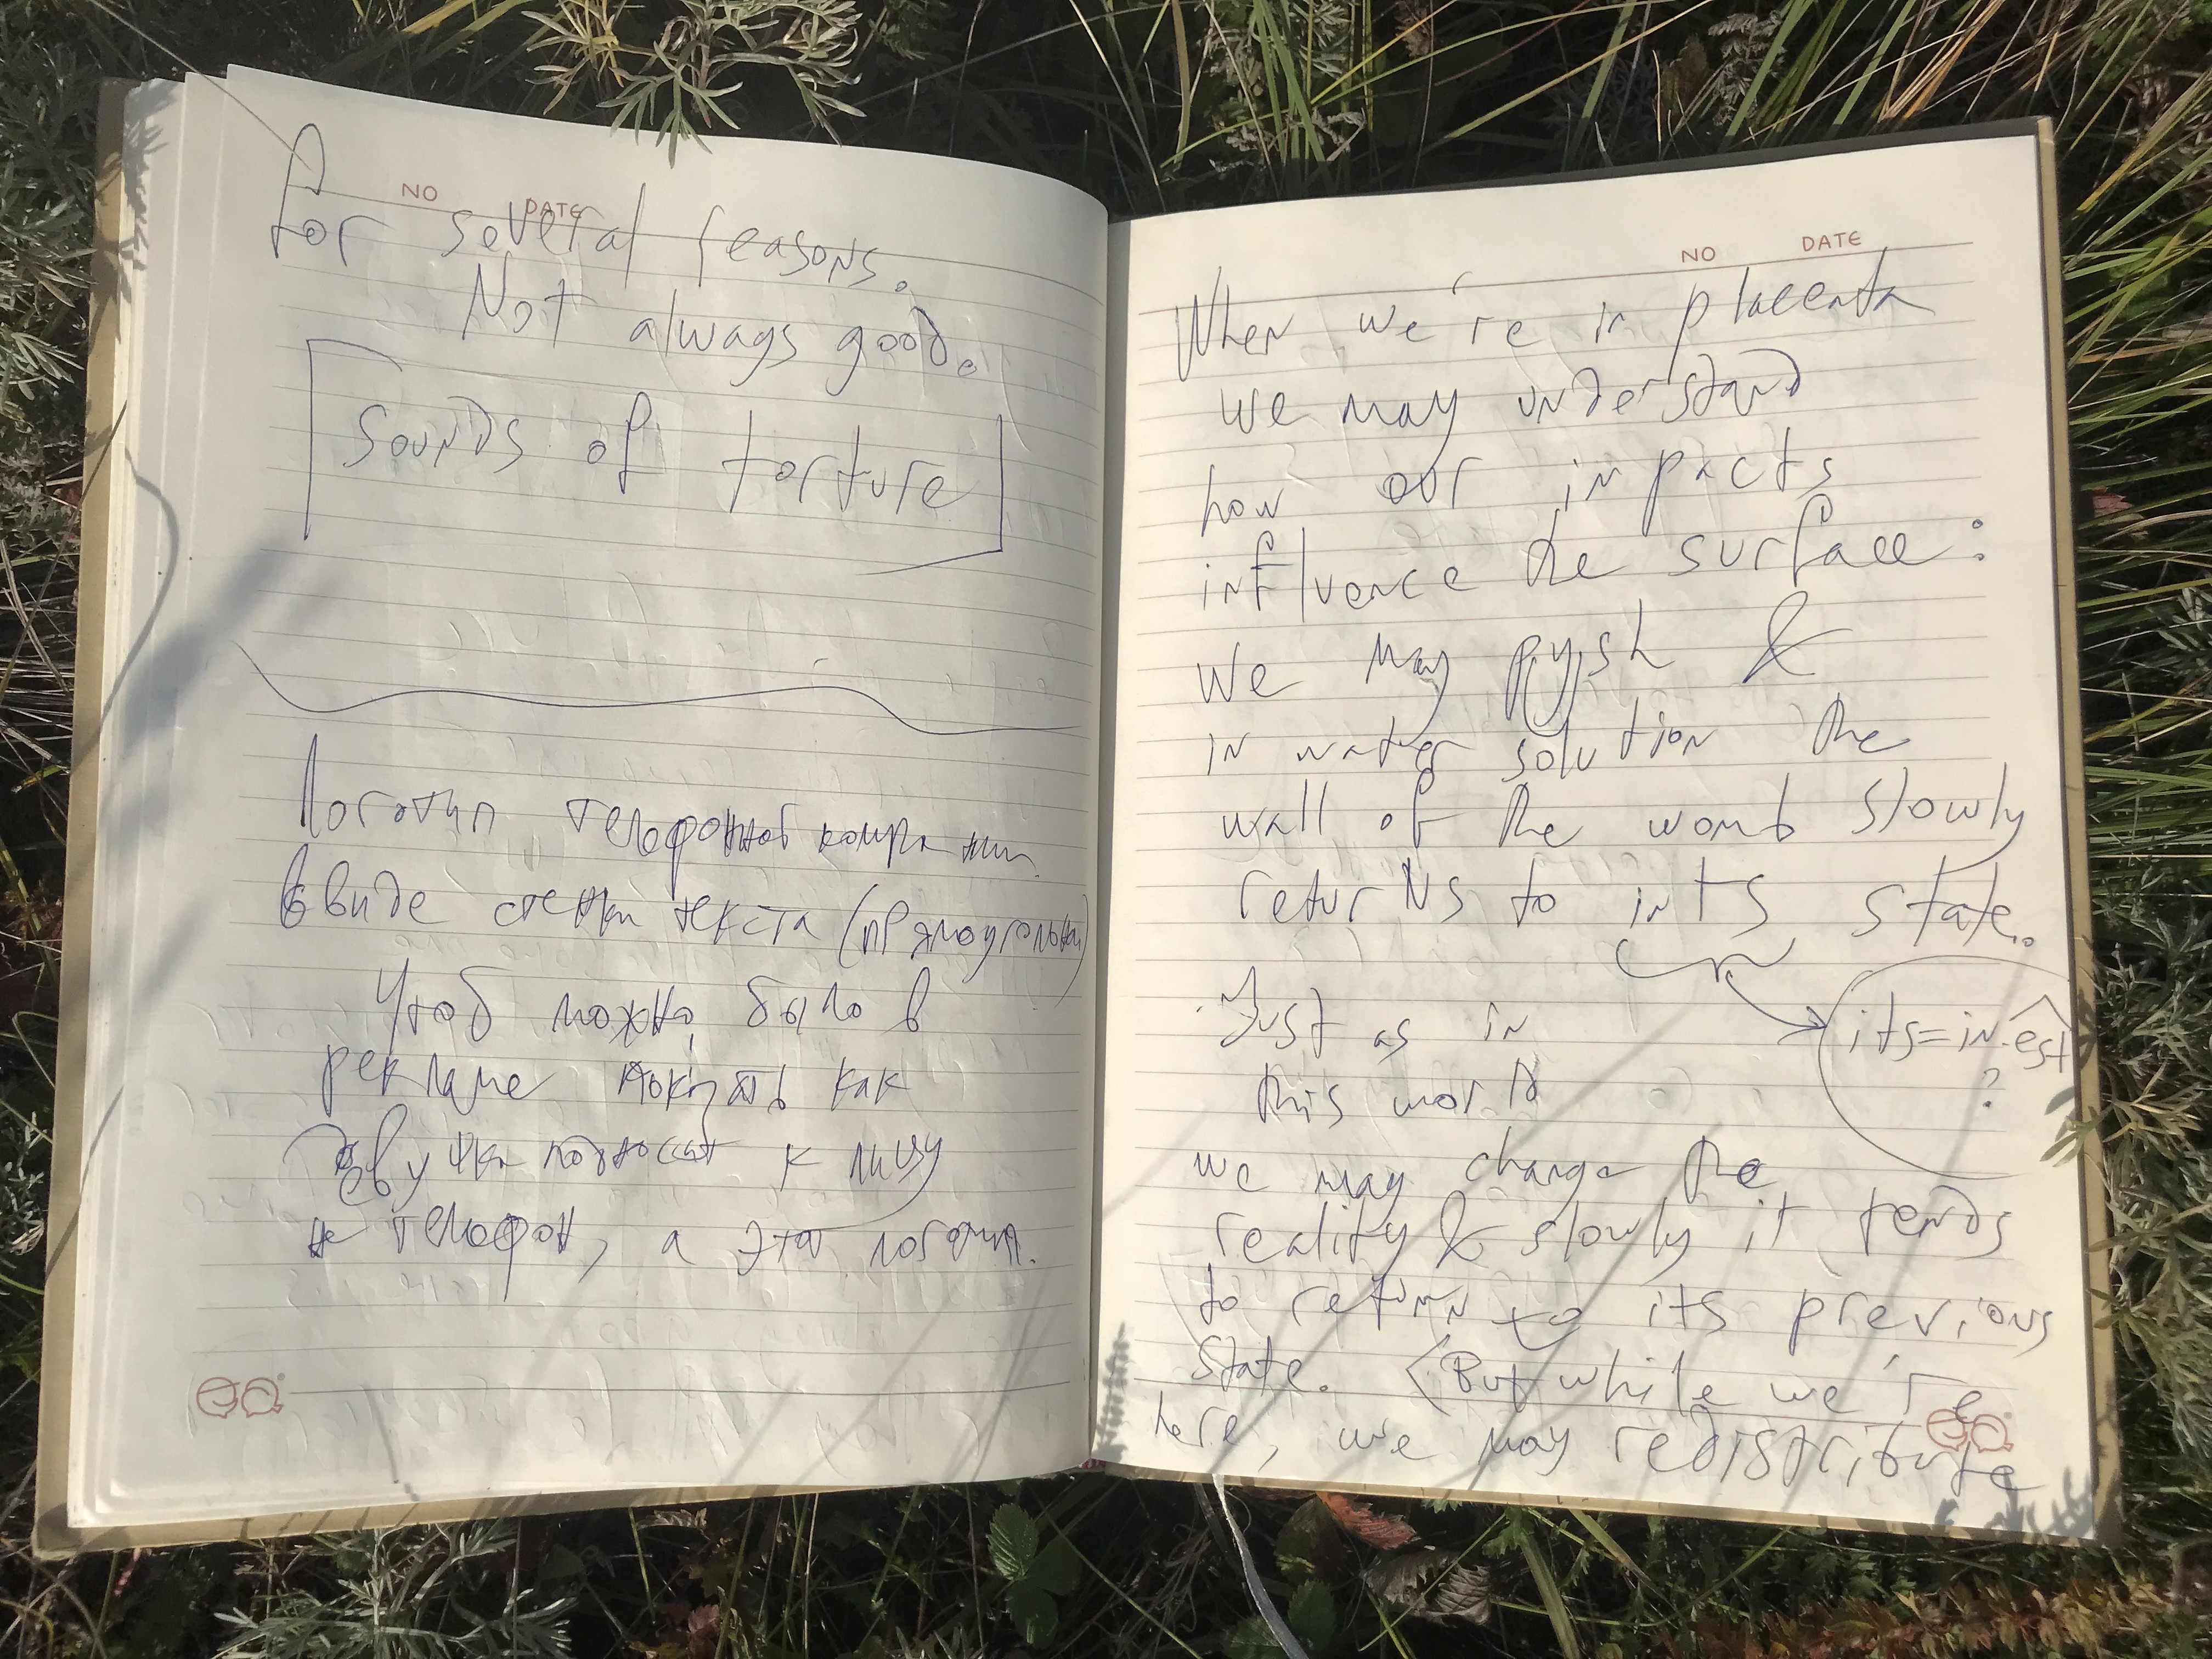 NO
DATE
For several reasons.
Not always good.
Sounds of torture
Логотип телефонной компании
в виде стены текста (прямоугольный)
Чтоб можно было в
рекламе показать как
девушка подносит к лицу
не телефон, а это логотип.
NO
DATE
When we're in placenta
we may understand
how our inpacts
influence the surface:
We may push &
in water solution the
wall of the womb slowly
returns to ints state.
Just as in
its=in-est
?
this world
we may change the
reality & slowly it tends
to return to its previous
state. (But while we,
here, we may redistribute